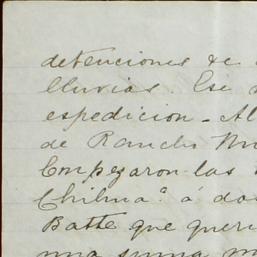 detenciones de
lluvias. Ese
espedicion - Al
de Rancho
Empezaron las
Chihua.ª á
Batte que
una suma